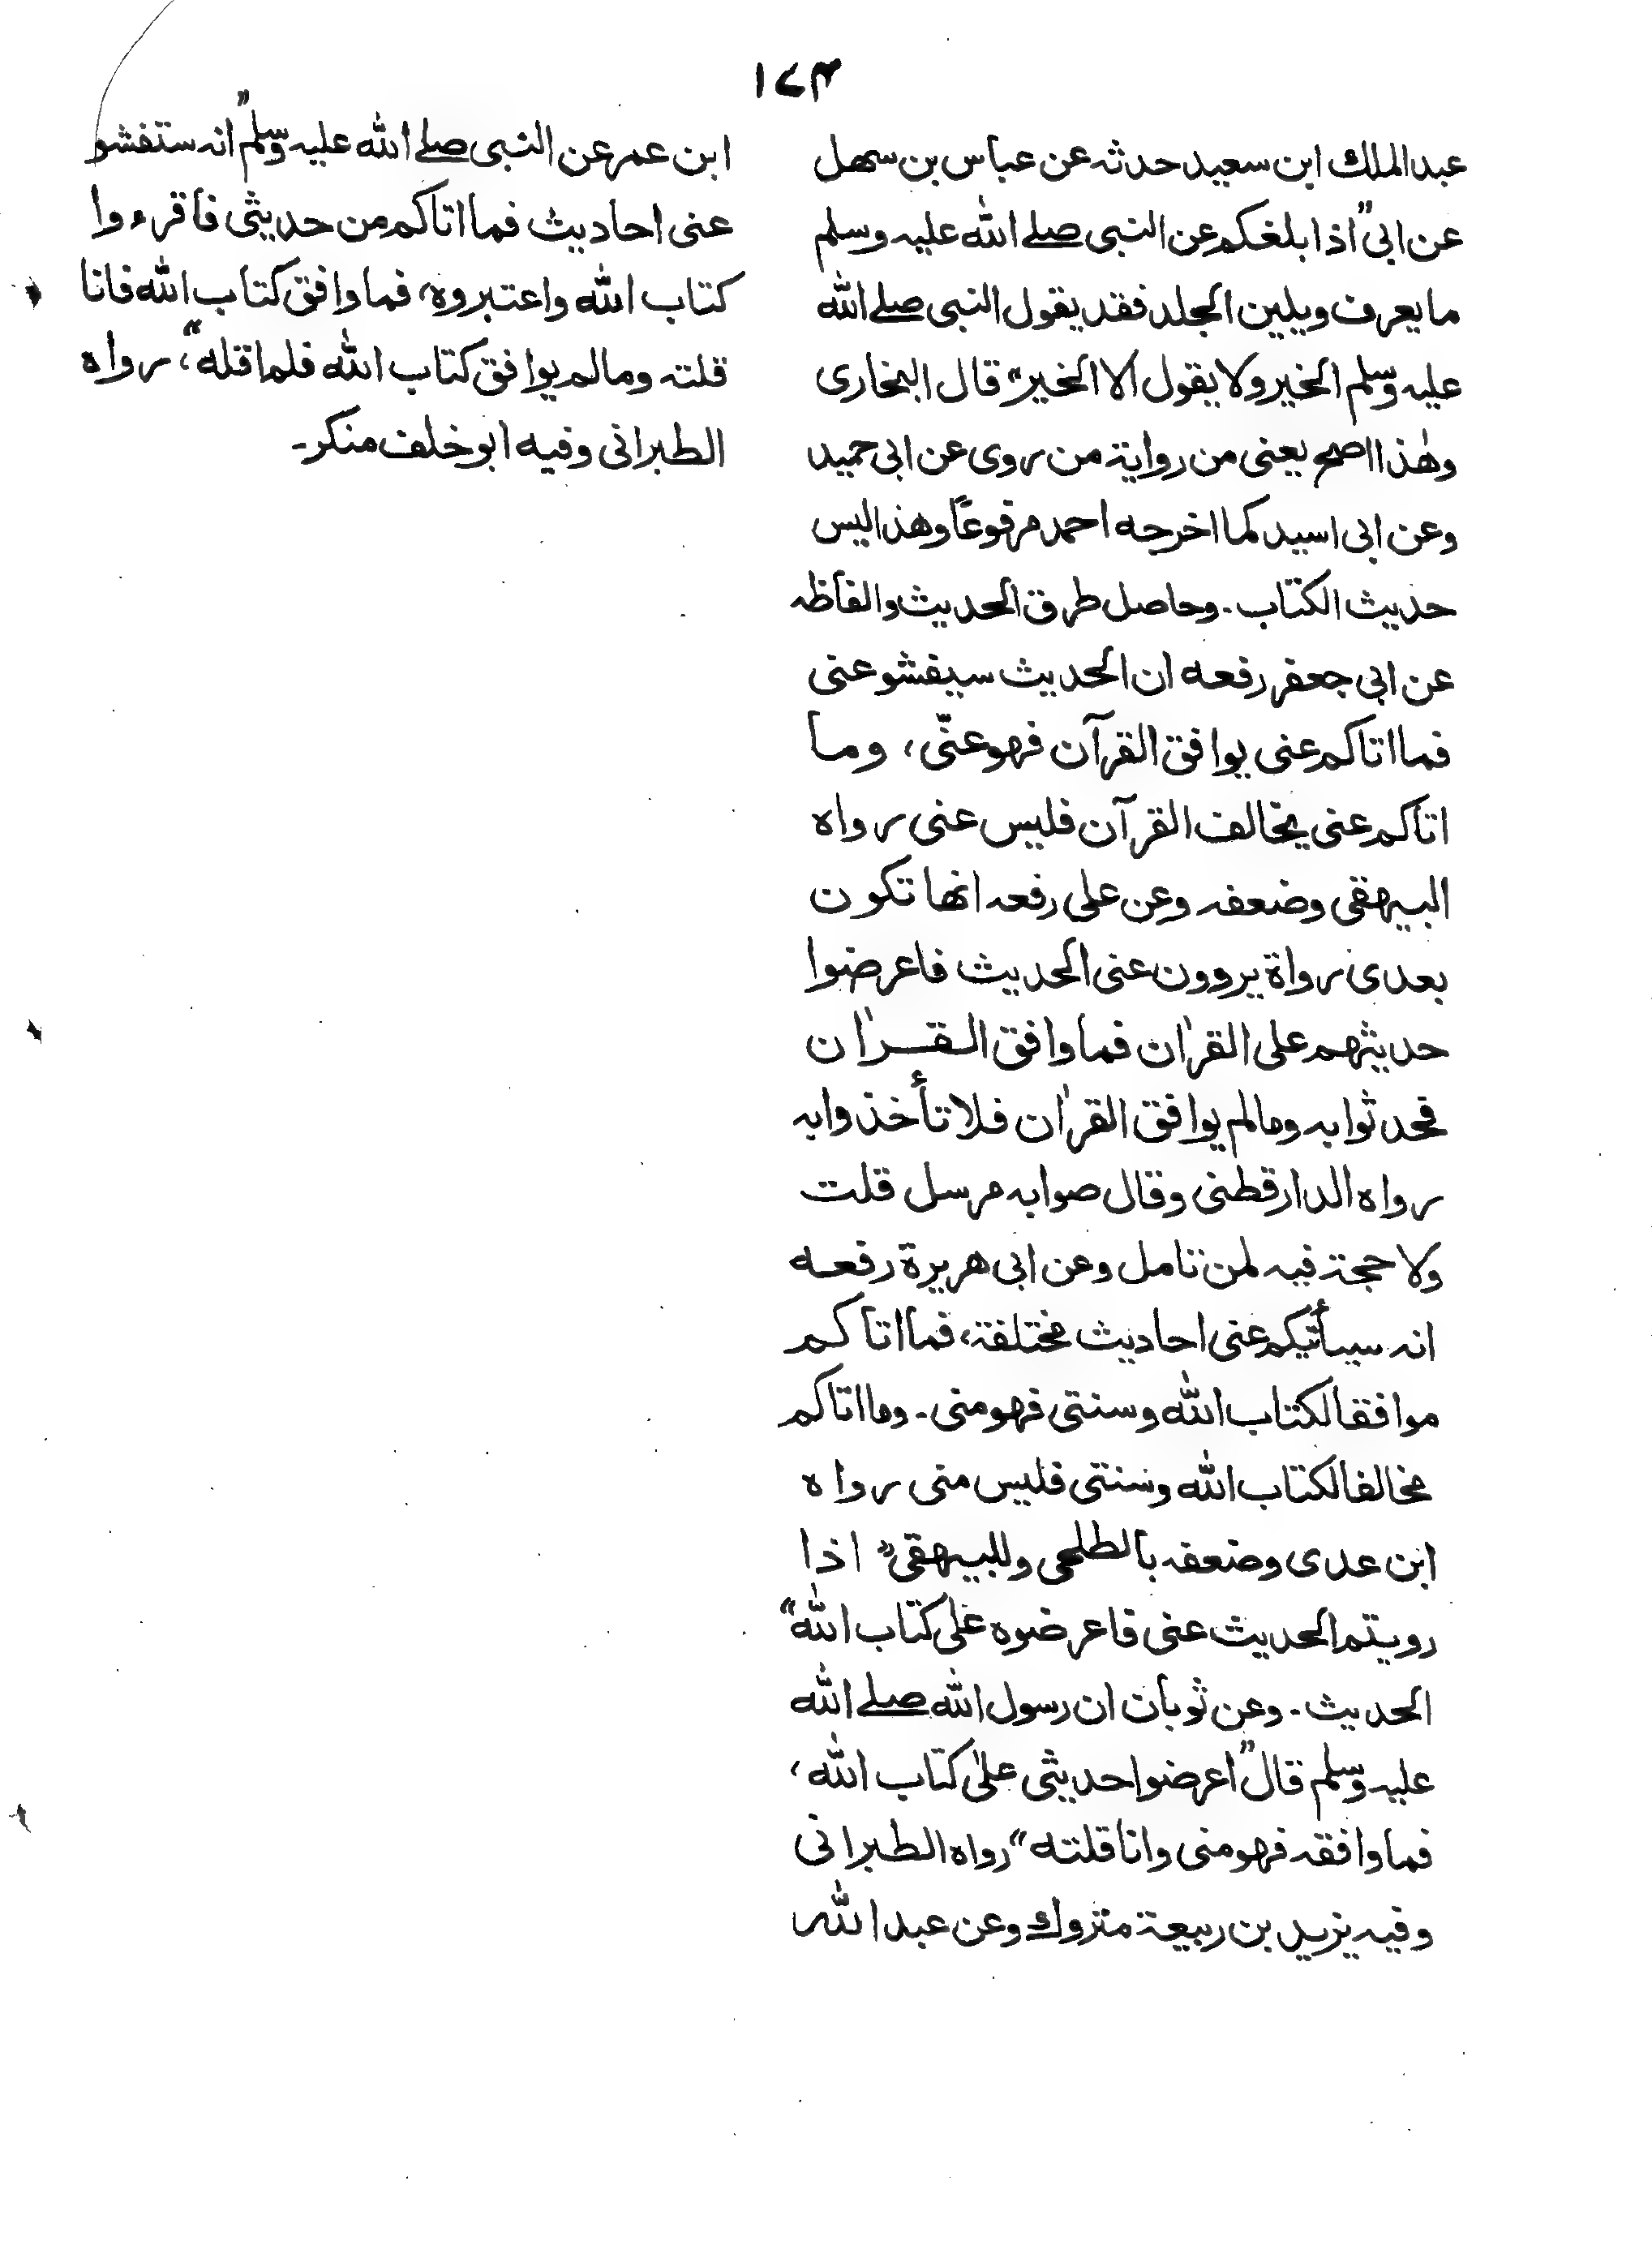 ۱۷۴
عبدالملك ابن سعيد حدثہ عن عباس بن سهل
عن ابی "اذا بلغكم عن النبی صلے الله عليہ وسلم
ما يعرف ويلين الجلد فقد يقول النبی صلے الله
عليہ وسلم الخير ولا يقول الا الخير" قال البخاری
وهٰذا اصح يعنی من رواية من روی عن ابی حميد
وعن ابی اسيد كما اخرجه احمد مرفوعًا وهذا ليس
حديث الكتاب۔ وحاصل طرق الحديث والفاظہ
عن ابی جعفر رفعه ان الحديث سيفشو عنی
فما اتاكم عنی يوافق القرآن فهو عنّی، وما
اتاكم عنی يخالف القرآن فليس عنی رواه
البيهقی وضعفہ وعن علی رفعہ انها تكون
بعدی رواة يروون عنی الحديث فاعرضوا
حديثهم علی القراٰن فما وافق القراٰن
فحدثوا بہ وما لم يوافق القراٰن فلا تأخذوا بہ
رواه الدارقطنی وقال صوابہ مرسل قلت
ولا حجة فيہ لمن تامل وعن ابی هريرة رفعه
انہ سيأتيكم عنی احاديث مختلفة، فما اتاكم
موافقا لكتاب الله وسنتی فهو منی۔ وما اتاكم
مخالفا لكتاب الله وسنتی فليس منی رواه
ابن عدی وضعفہ بالطلحی وللبيهقی "اذا
رويتم الحديث عنی فاعرضوه علی كتاب الله"
الحديث۔ وعن ثوبان ان رسول الله صلے الله
عليہ وسلم قال "اعرضوا حديثی علیٰ كتاب الله،
فما وافقہ فهو منی وانا قلتہ" رواه الطبرانی
وفيہ يزيد بن ربيعة متروك وعن عبدالله
ابن عمر عن النبی صلے الله عليہ وسلم "انہ ستفشو
عنی احاديث فما اتاكم من حديثی فاقرءوا
كتاب الله واعتبروه، فما وافق كتاب الله فانا
قلتہ وما لم يوافق كتاب الله فلم اقله"، رواه
الطبرانی وفيه ابو خلف منكر۔